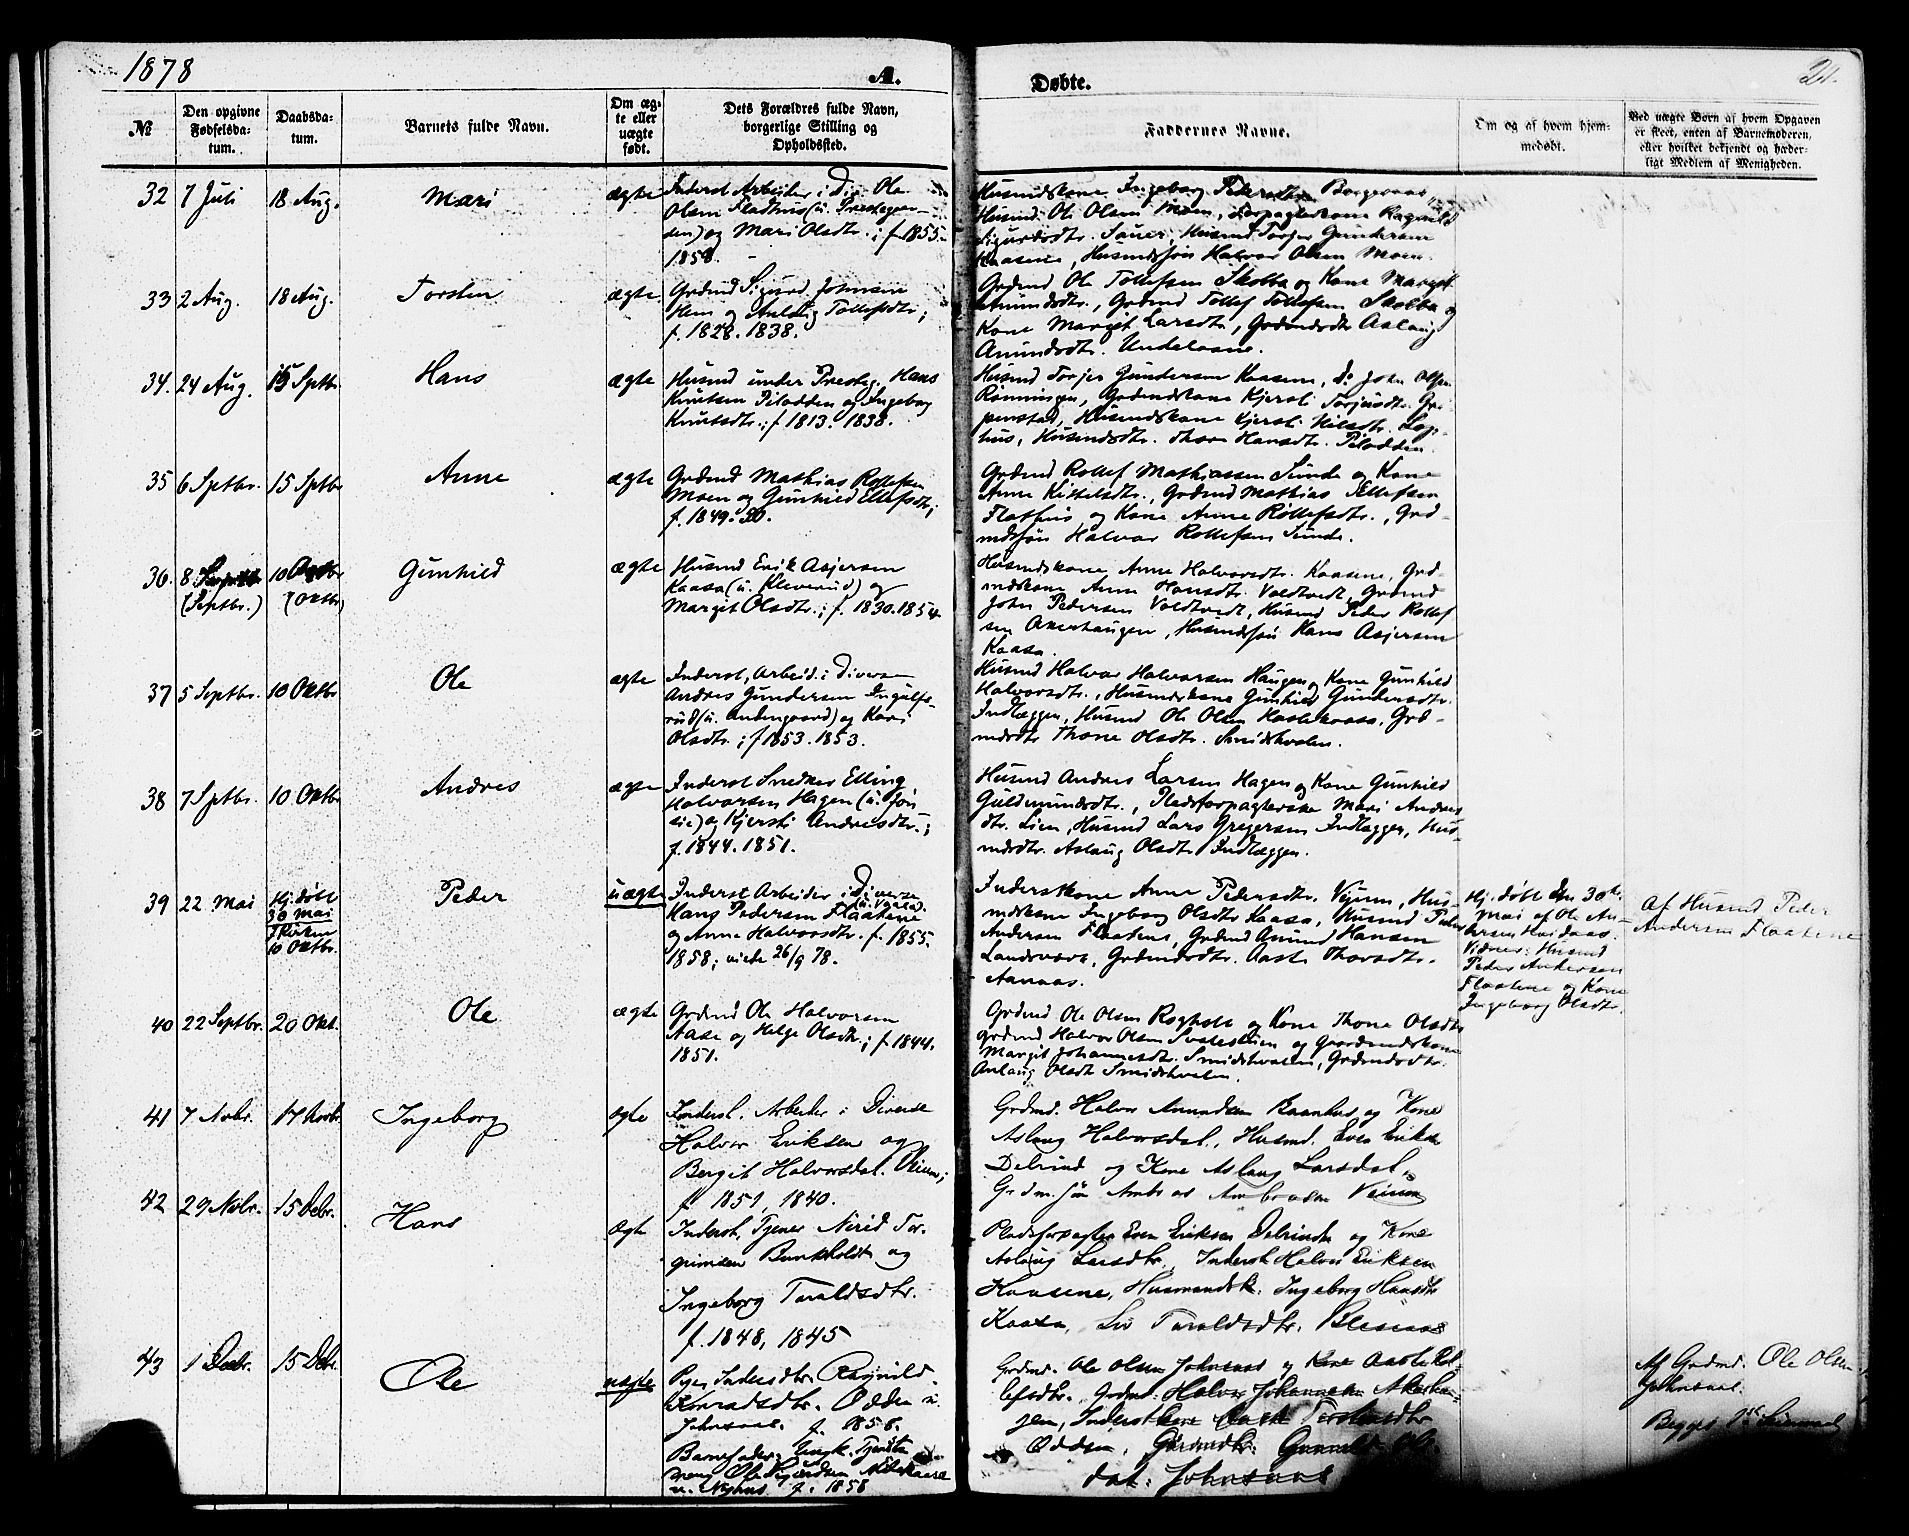 1878
A.
Døbte.
№
Den opgivne Fødselsda-
tum.
Daabsda-
tum.
Barnets fulde Navn.
Om æg-
te eller
uægte
født.
Dets Forældres fulde Navn,
borgerlige Stilling og
Opholdssted.
Faddernes Navne.
Om og af hvem hjem-
medøbt.
Ved uægte Børn af hvem Opgaven
er skeet, enten af Barnemoderen,
eller hvilket bekjendt og hæder-
ligt Medlem af Menigheden.
32 7 Juli 18 Aug. Mari ægte
Inderst Arbeider i Div. Ole
Olsen Fladhus (u. Præstegaar-
den) og Mari Olsdtr.; f. 1855.
1858.
Husmdskone Ingeborg Pedersdtr.
Husmd. Ole Olsen Moen, Forpagterkone Ragnild
Sigurdsdtr. Sauer, Husmd Torjer Gundersen
Kaasene, Husmdssøn Halvor Olsen Moen.
33 2 Aug. 18 Aug. Torsten ægte
Grdmd Sigurd Johnsen
Hem og Aslaug Tollefsdtr.;
f. 1828. 1838.
Grdmd Ole Tollefsen Skobba og Kone Margit
Amundsdtr., Grdmd Tollef Tollefsen Skobba og
Kone Margit Larsdtr., Grdmdsdtr Aslaug
Amundsdtr.
34. 24 Aug. 15 Sptbr. Hans ægte
Husmd under Presteg. Hans
Knutsen Pilodden og Ingeborg
Knutsdtr.; f. 1813. 1838.
Husmd Torjer Gundersen Kaasene, do John Olsen
Rønningen, Grdmdskone Kjersti Torjusdtr. Gri-
penstad, Husmdskone Kjersti Nilsdtr. Lop-
hus, Husmdsdtr. Thore Hansdtr. Pilodden.
35 6 Sptbr. 15 Sptbr Anne ægte
Grdmd Mathias Rollefsen
Moen og Gunhild Ellefsdtr;
f. 1849. 50.
Grdmd Rollef Mathiassen Sunde og Kone
Anne Kittilsdtr., Grdmd Mathias Tollefsen
Flathus og Kone Anne Rollefsdtr., Grd-
mdssøn Halvor Rollefsen Sunde.
36. 8 (Septbr.) 10 (Oktbr) Gunhild ægte
Husmd Erik Asjersen
Kaasa (u. Kleverud) og
Margit Olsdtr.; f. 1830. 1854.
Husmdskone Anne Halvorsdtr. Kaasene, Grd-
mdskone Anne Hansdtr. Voldtvedt, Grdmd
John Pedersen Voldtvedt, Husmd Peder Rollef
sen Akerhaugen, Husmdssøn Hans Asjersen
Kaasa.
37 5 Septbr. 10 Oktbr. Ole ægte
Inderst, Arbeid. i Diverse
Andres Gundersen Ingulfs-
rud (u. Andengaard) og Kari
Olsdtr.; f. 1853. 1853.
Husmd Halvor Halvorsen Haugen og Kone Gunhild
Halvorsdtr., Husmdskone Gunhild Gundersdtr.
Indlæggen, Husmd Ole Olsen Haslekaasa, Grd-
mdsdtr Thone Olsdtr. Smidshvalen.
38 7 Sptbr. 10 Oktbr Andres ægte
Inderst Snedker Elling
Halvorsen Hagen (u. Jøn
sie) og Kjersti Andresdtr.;
f. 1844. 1851.
Husmd Andres Larsen Hagen og Kone Gunhild
Guldmundsdtr., Pladsforpagterske Mari Andres
dtr. Lien, Husmd Lars Gregersen Indlæggen, Hus-
mdsdtr. Aslaug Olsdtr. Indlæggen.
39 22 Mai Hj. døbt
30 Mai
I Kirken
10 Oktbr. Peder uægte
Inderst Arbeider i Diverse
Hans Pedersen Flaatene
og Anne Halvorsdtr. f. 1855.
1858; viede 26/9 78.
Inderstkone Anne Pedersdtr. Veium, Hus-
mdskone Ingeborg Olsdtr. Kaasa, Husmd Peder
Andersen Flaatene, Grdmd Amund Hansen
Landsværk, Grdmdsdtr. Aaste Thorsdtr.
Aanaas.
Hj. døbt den 30te
Mai af Ole An-
dersen Haidaas.
Vidner: Husmd
Peder Andersen
Flaatene og Kone
Ingeborg Olsdtr.
Af Husmd Peder
Andersen Flaatene
40 22 Septbr. 20 Okt. Ole ægte
Grdmd Ole Halvorsen
Aase og Helge Olsdtr.; f. 1844.
1851.
Grdmd Ole Olsen Rogholt og Kone Thone Olsdtr
Grdmd. Halvor Olsen og Gaardmandskone
Margit Johannesdtr. Smidshvalen, Grdmdsdtr.
Aslaug Olsdtr Smidshvalen.
41 7 Nvbr. 17 Nvbr. Ingeborg ægte
Inderst. Arbeider i Diverse
Halvor Eriksen og
Bergit Halvorsdat. Veium;
f. 1851, 1840.
Grdmd. Halvor Amundsen Baanhus og Kone
Aslaug Halvorsdat., Husmd. Even Eriksen
Delrind og Kone Aslaug Larsdat.,
Grdm.søn Ambros Ambrosen Veium
42 29 Nvbr. 15 Debr. Hans Ægte
Inderst, Tjener Nirid Tor-
grimsen Bunkholdt og
Ingeborg Taraldsdtr.
f. 1848, 1845
Pladsforpagter Even Eriksen Delrinde og Kone
Aslaug Larsdtr., Inderst Halvor Eriksen
Kaasene, Husmandsk. Ingeborg Hansdtr
Kaasa, Liv Taraldsdtr.
43 1 Decbr. 15 Debr. Ole uægte
Pige, Indersdtr. Ragnild
Konradsdtr. Odden u.
Johnsaas. f. 1858.
Barnefader: Ungk. Tjeneste
mand Ole Sigurdsen
u. Nyhus f. 1858
Grdmd. Ole Olsen Johnsaas og Kone Aaste Rol-
lefsdtr. Grdmd. Halvor Johannesen Akerhau-
gen, Inderstkone Torstensdtr
Odden, Gaardmdsdtr. Gunnild Ols-
dat. Johnsaas
Af Grdmd. Ole Olsen
Johnsaas.
Begges